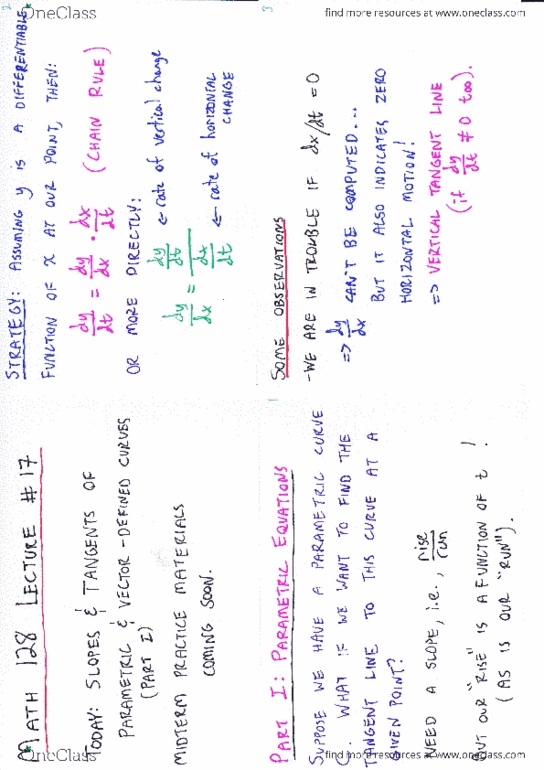 OneClass
find more resources at www.oneclass.com
MATH 128 LECTURE #17
TODAY: SLOPES & TANGENTS OF
PARAMETRIC & VECTOR-DEFINED CURVES
(PART I)
MIDTERM PRACTICE MATERIALS
COMING SOON.
1
PART I: PARAMETRIC EQUATIONS
SUPPOSE WE HAVE A PARAMETRIC CURVE
C. WHAT IF WE WANT TO FIND THE
TANGENT LINE TO THIS CURVE AT A
GIVEN POINT?
NEED A SLOPE, i.e., rise/run
BUT OUR "RISE" IS A FUNCTION OF t!
(AS IS OUR "RUN").
2
STRATEGY: ASSUMING y IS A DIFFERENTIABLE
FUNCTION OF x AT OUR POINT, THEN:
dy/dt = dy/dx · dx/dt (CHAIN RULE)
OR MORE DIRECTLY:
dy/dx = (dy/dt)/(dx/dt) ← rate of vertical change
← rate of horizontal
CHANGE
3
SOME OBSERVATIONS
-WE ARE IN TROUBLE IF dx/dt = 0
=> dy/dx CAN'T BE COMPUTED...
BUT IT ALSO INDICATES ZERO
HORIZONTAL MOTION!
=> VERTICAL TANGENT LINE
(if dy/dt ≠ 0 too).
OneClass
find more resources at www.oneclass.com